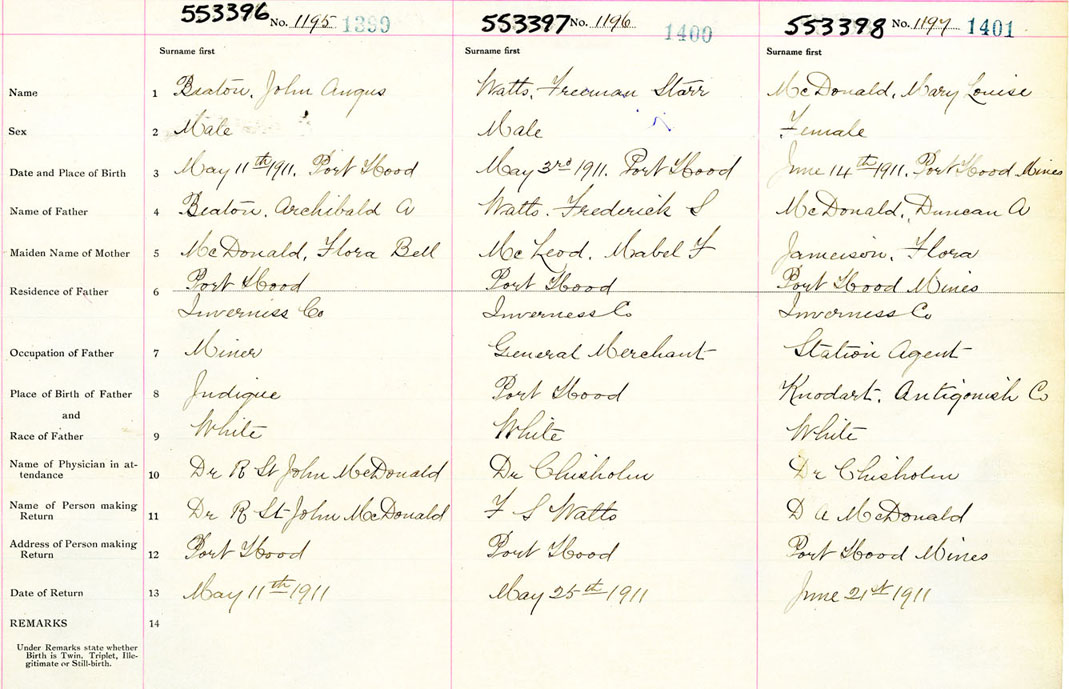 553396 No. 1195 1399 553397 No. 1196 1400 553398 No. 1197 1401
Surname first Surname first Surname first
Name 1 Beaton, John Angus Watts, Freeman Starr McDonald, Mary Louise
Sex 2 Male Male Female
Date and Place of Birth 3 May 11th 1911. Port Hood May 3rd 1911. Port Hood June 14th 1911. Port Hood Mines
Name of Father 4 Beaton, Archibald A Watts. Frederick S McDonald, Duncan A
Maiden Name of Mother 5 McDonald, Flora Bell McLeod, Mabel F Jameison, Flora
Residence of Father 6 Port Hood Port Hood Port Hood Mines
Inverness Co Inverness Co Inverness Co
Occupation of Father 7 Miner General Merchant Station Agent
Place of Birth of Father 8 Judique Port Hood Knodart, Antigonish Co
and
Race of Father 9 White White White
Name of Physician in at-
tendance 10 Dr R St John McDonald Dr Chisholm Dr Chisholm
Name of Person making
Return 11 Dr R St John McDonald F S Watts D A McDonald
Address of Person making
Return 12 Port Hood Port Hood Port Hood Mines
Date of Return 13 May 11th 1911 May 25th 1911 June 21st 1911
REMARKS 14
Under Remarks state whether
Birth is Twin, Triplet, Ille-
gitimate or Still-birth.